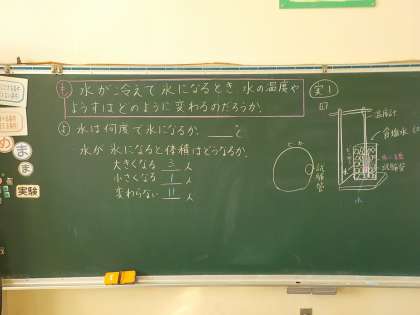 も 水が冷えて氷になるとき 水の温度や
ようすはどのように変わるのだろうか。
よ 水は何度で氷になるか。____℃
水が氷になると体積はどうなるか。
大きくなる 三 人
小さくなる 1 人
変わらない 11 人
実1
温度計
食塩水
試験管
試験管
氷
め
ま
ま
実験